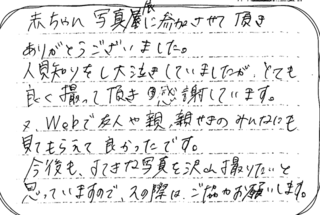 赤ちゃん写真展に参加させて頂き
ありがとうございました。
人見知りをし大泣きしていましたが、とても
良く撮って頂き感謝しています。
又、Webで友人や親、親せきのみんなにも
見てもらえて良かったです。
今後も、すてきな写真を沢山撮りたいと
思っていますので、その際は、ご協力お願いします。